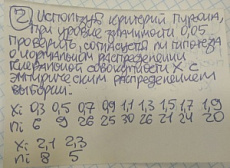 2) Используя критерий Пирсона,
при уровне значимости 0,05
Проверить, согласуется ли гипотеза
о нормальном распределении
генеральной совокупности X с
эмпирическим распределением
выборки.
Xi 0,3 0,5 0,7 0,9 1,1 1,3 1,5 1,7 1,9
ni 6 9 26 25 30 26 21 24 20
Xi 2,1 2,3
ni 8 5